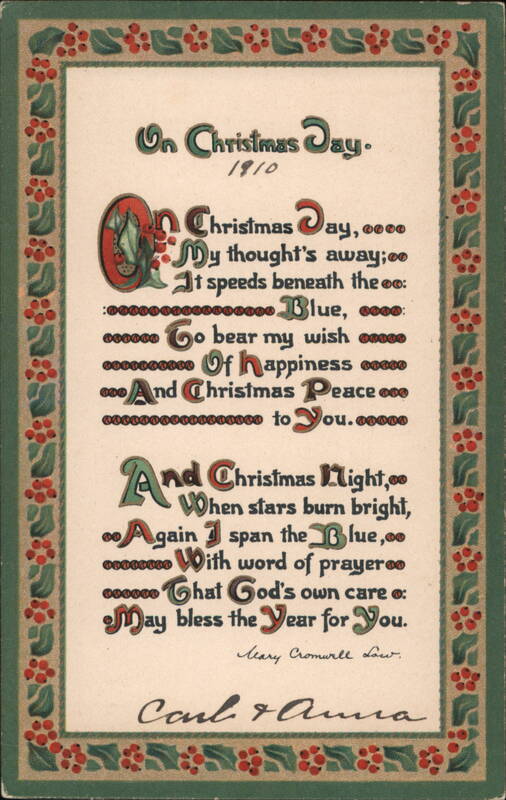 On Christmas Day.
1910
On Christmas Day,
My thought's away;
It speeds beneath the
Blue,
To bear my wish
Of happiness
And Christmas Peace
to You.
And Christmas Night,
When stars burn bright,
Again I span the Blue,
With word of prayer
That God's own care
May bless the Year for You.
Mary Cromwell Low.
Carl & Anna